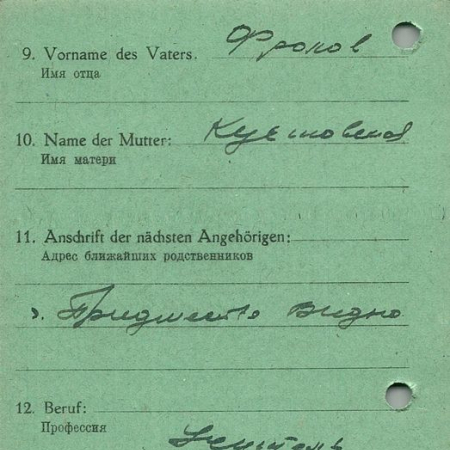 9. Vorname des Vaters. Фролов
Имя отца
10. Name der Mutter:
Имя матери
11. Anschrift der nächsten Angehörigen:
Адрес ближайших родственников
12. Beruf:
Профессия
Учитель